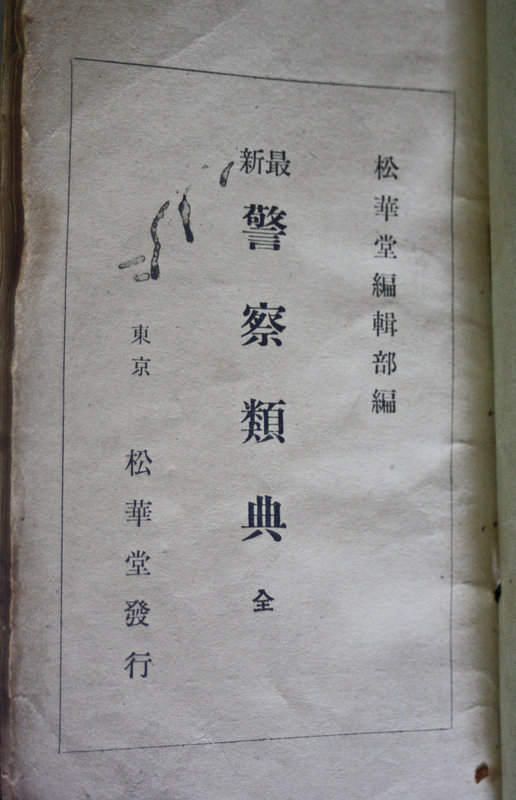 松華堂編輯部編
最新
警察類典 全
東京 松華堂發行